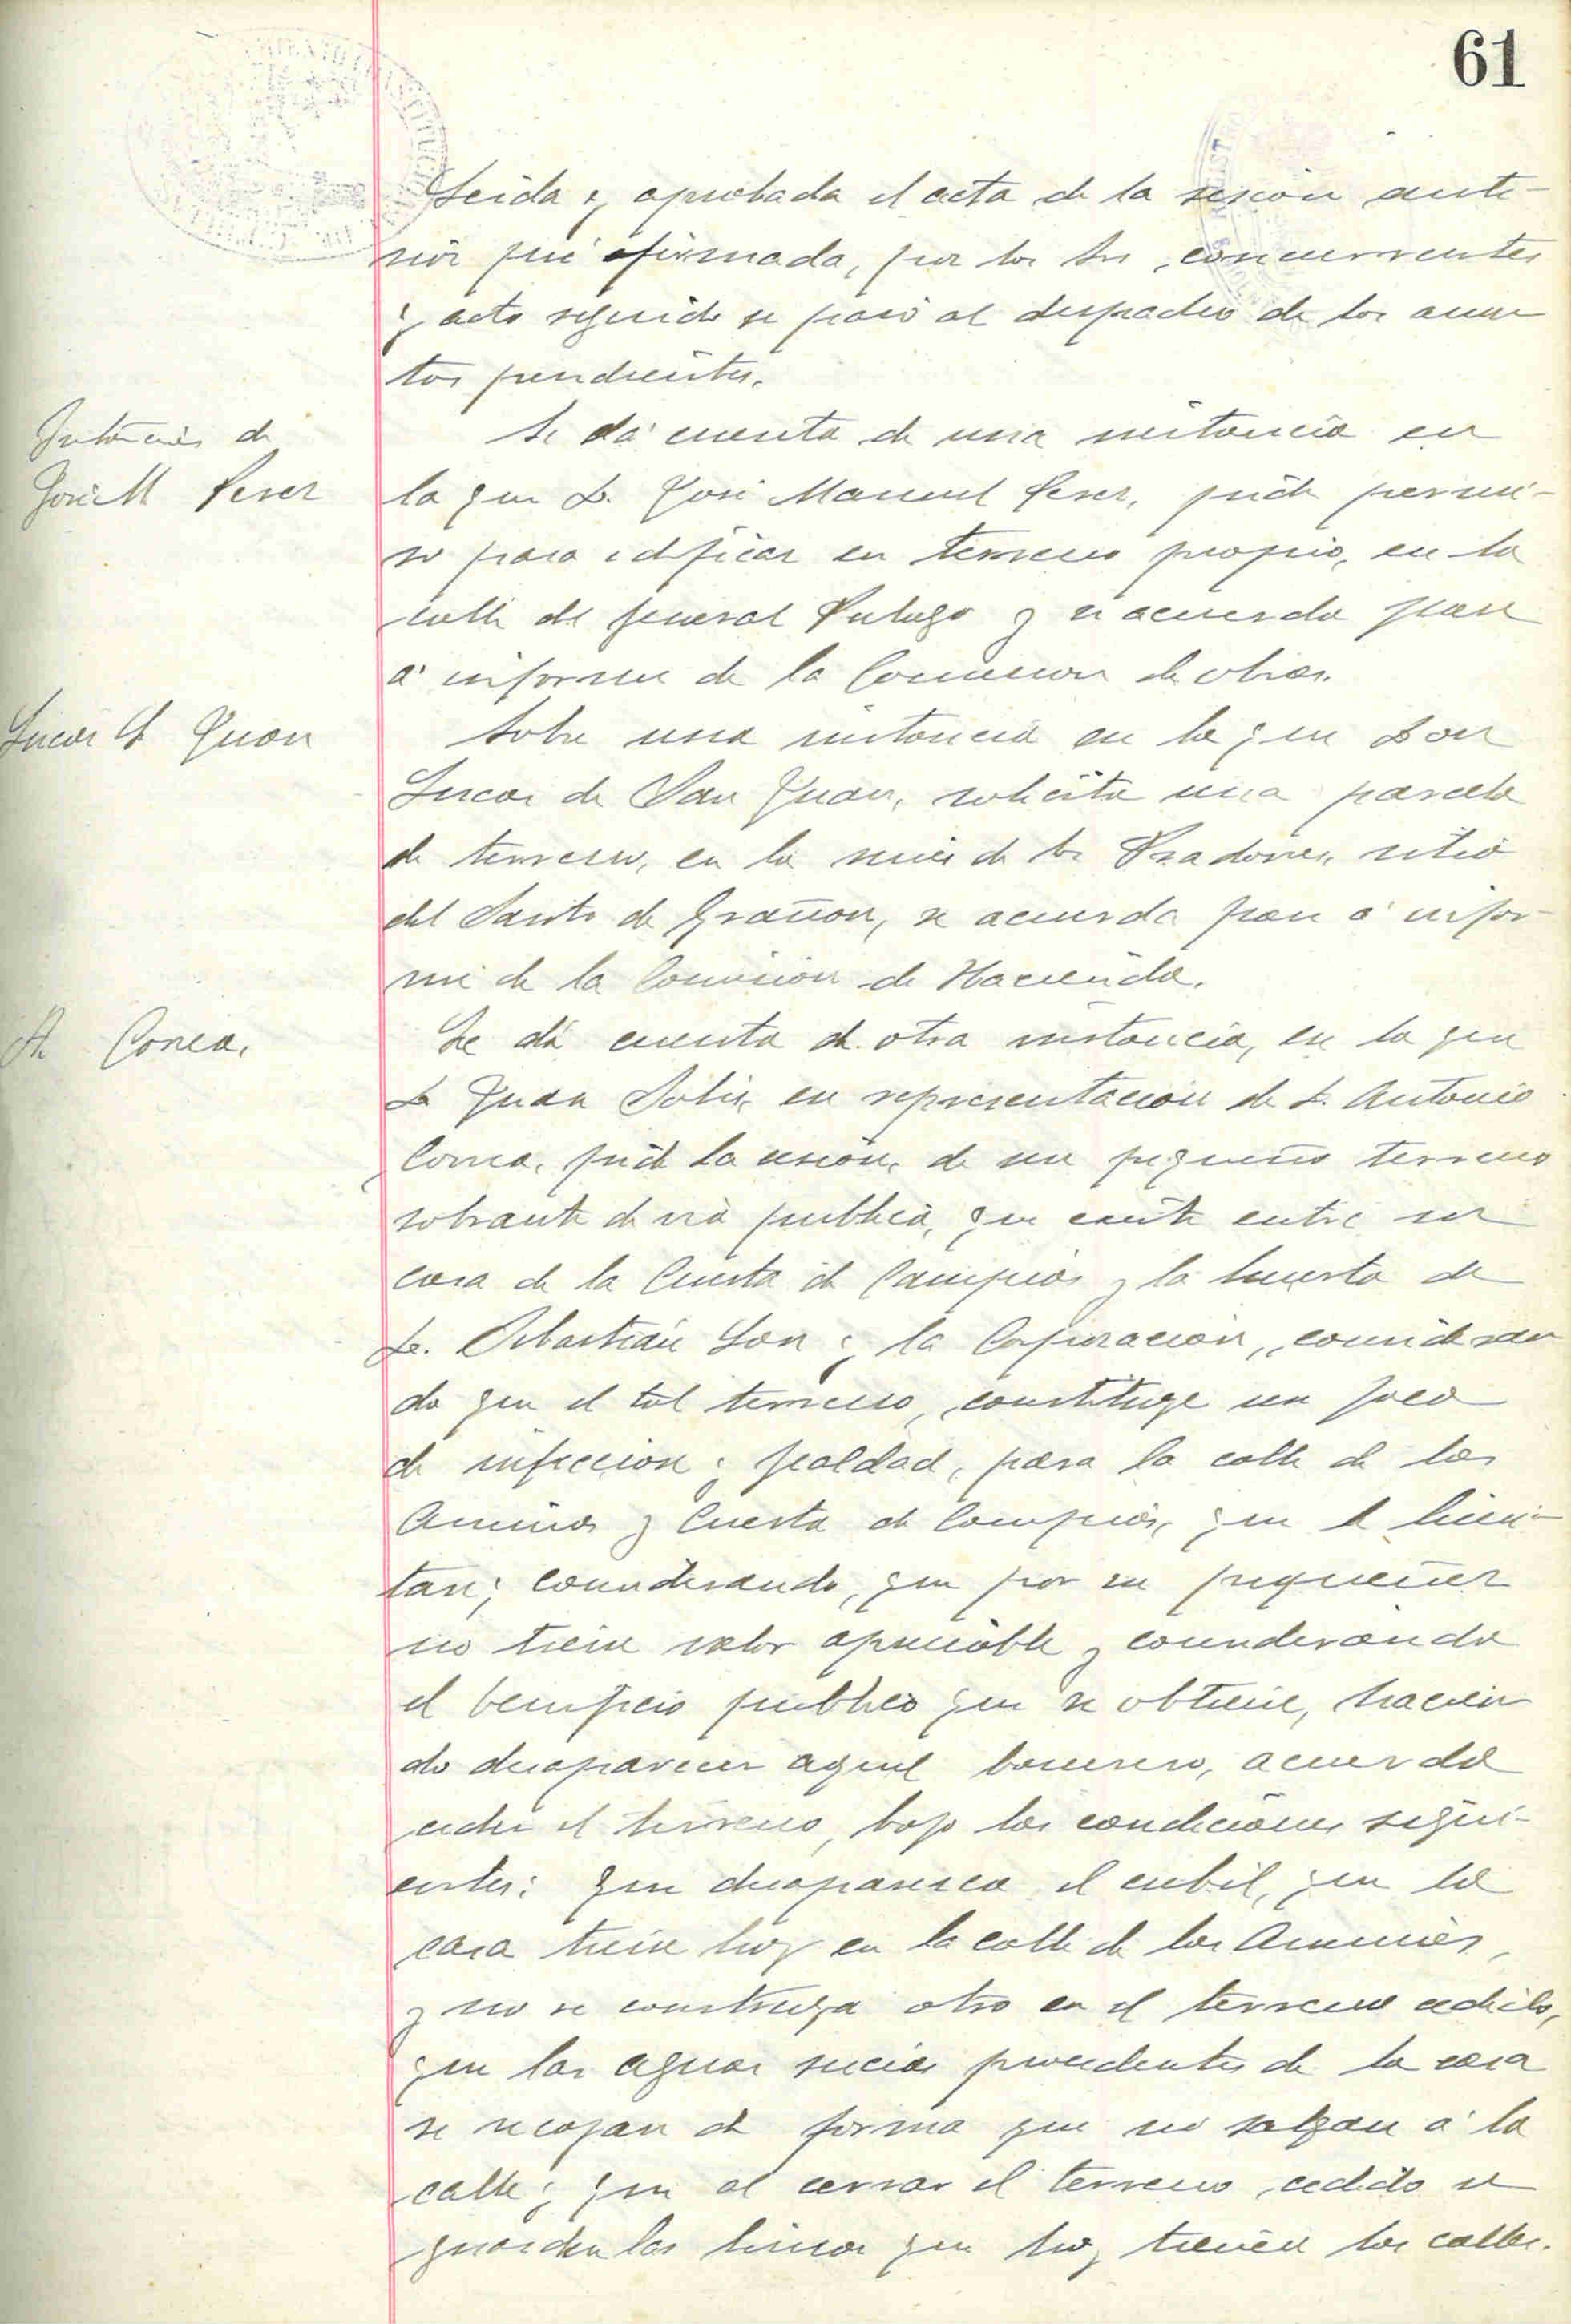 61
Leida y aprobada el acta de la sesión ante-
rior fué firmada, por los Srs concurrentes
y acto seguido se pasó al despacho de los asun
tos pendientes.
Instancia de
José M Perez
Se dá cuenta de una instancia en
la que D. José Manuel Perez, pide permi-
so para edificar en terreno propio, en la
calle del general y se acuerda pase
á informe de la Comision de obras.
Lucas S Juan
Sobre una instancia en la que Don
Lucas de San Juan, solicita una parcela
de terreno, en la mies de los Pradones, sitio
del Santo de Grañon, se acuerda pase á infor-
me de la Comision de Hacienda.
A. Correa.
Se dá cuenta de otra instancia, en la que
D Juan Solis, en representación de D. Antonio
Correa, pide la cesión, de un pequeño terreno
sobrante de via publica, que existe entre su
casa de la Cuesta de Campios y la huerta de
D. Sebastián Son y la Corporacion, consideran
do que el tal terreno, constituye un foco
de infeccion y fealdad, para la calle de las
Animas y Cuesta de Campios, que le limi-
tan; considerando, que por su pequeñez
no tiene valor apreciable y considerando
el beneficio publico que se obtiene, hacien
do desaparecer aquel basurero, acuerda
ceder el terreno, bajo las condiciones sigui-
entes: Que desaparezca el cubil, que la
casa tiene hoy en la calle de las Animas,
y no se construya otro en el terreno cedido,
que las aguas sucias procedentes de la casa
se recojan de forma que no salgan á la
calle y que al cerrar el terreno cedido se
guarden las lineas que hoy tienen las calles.